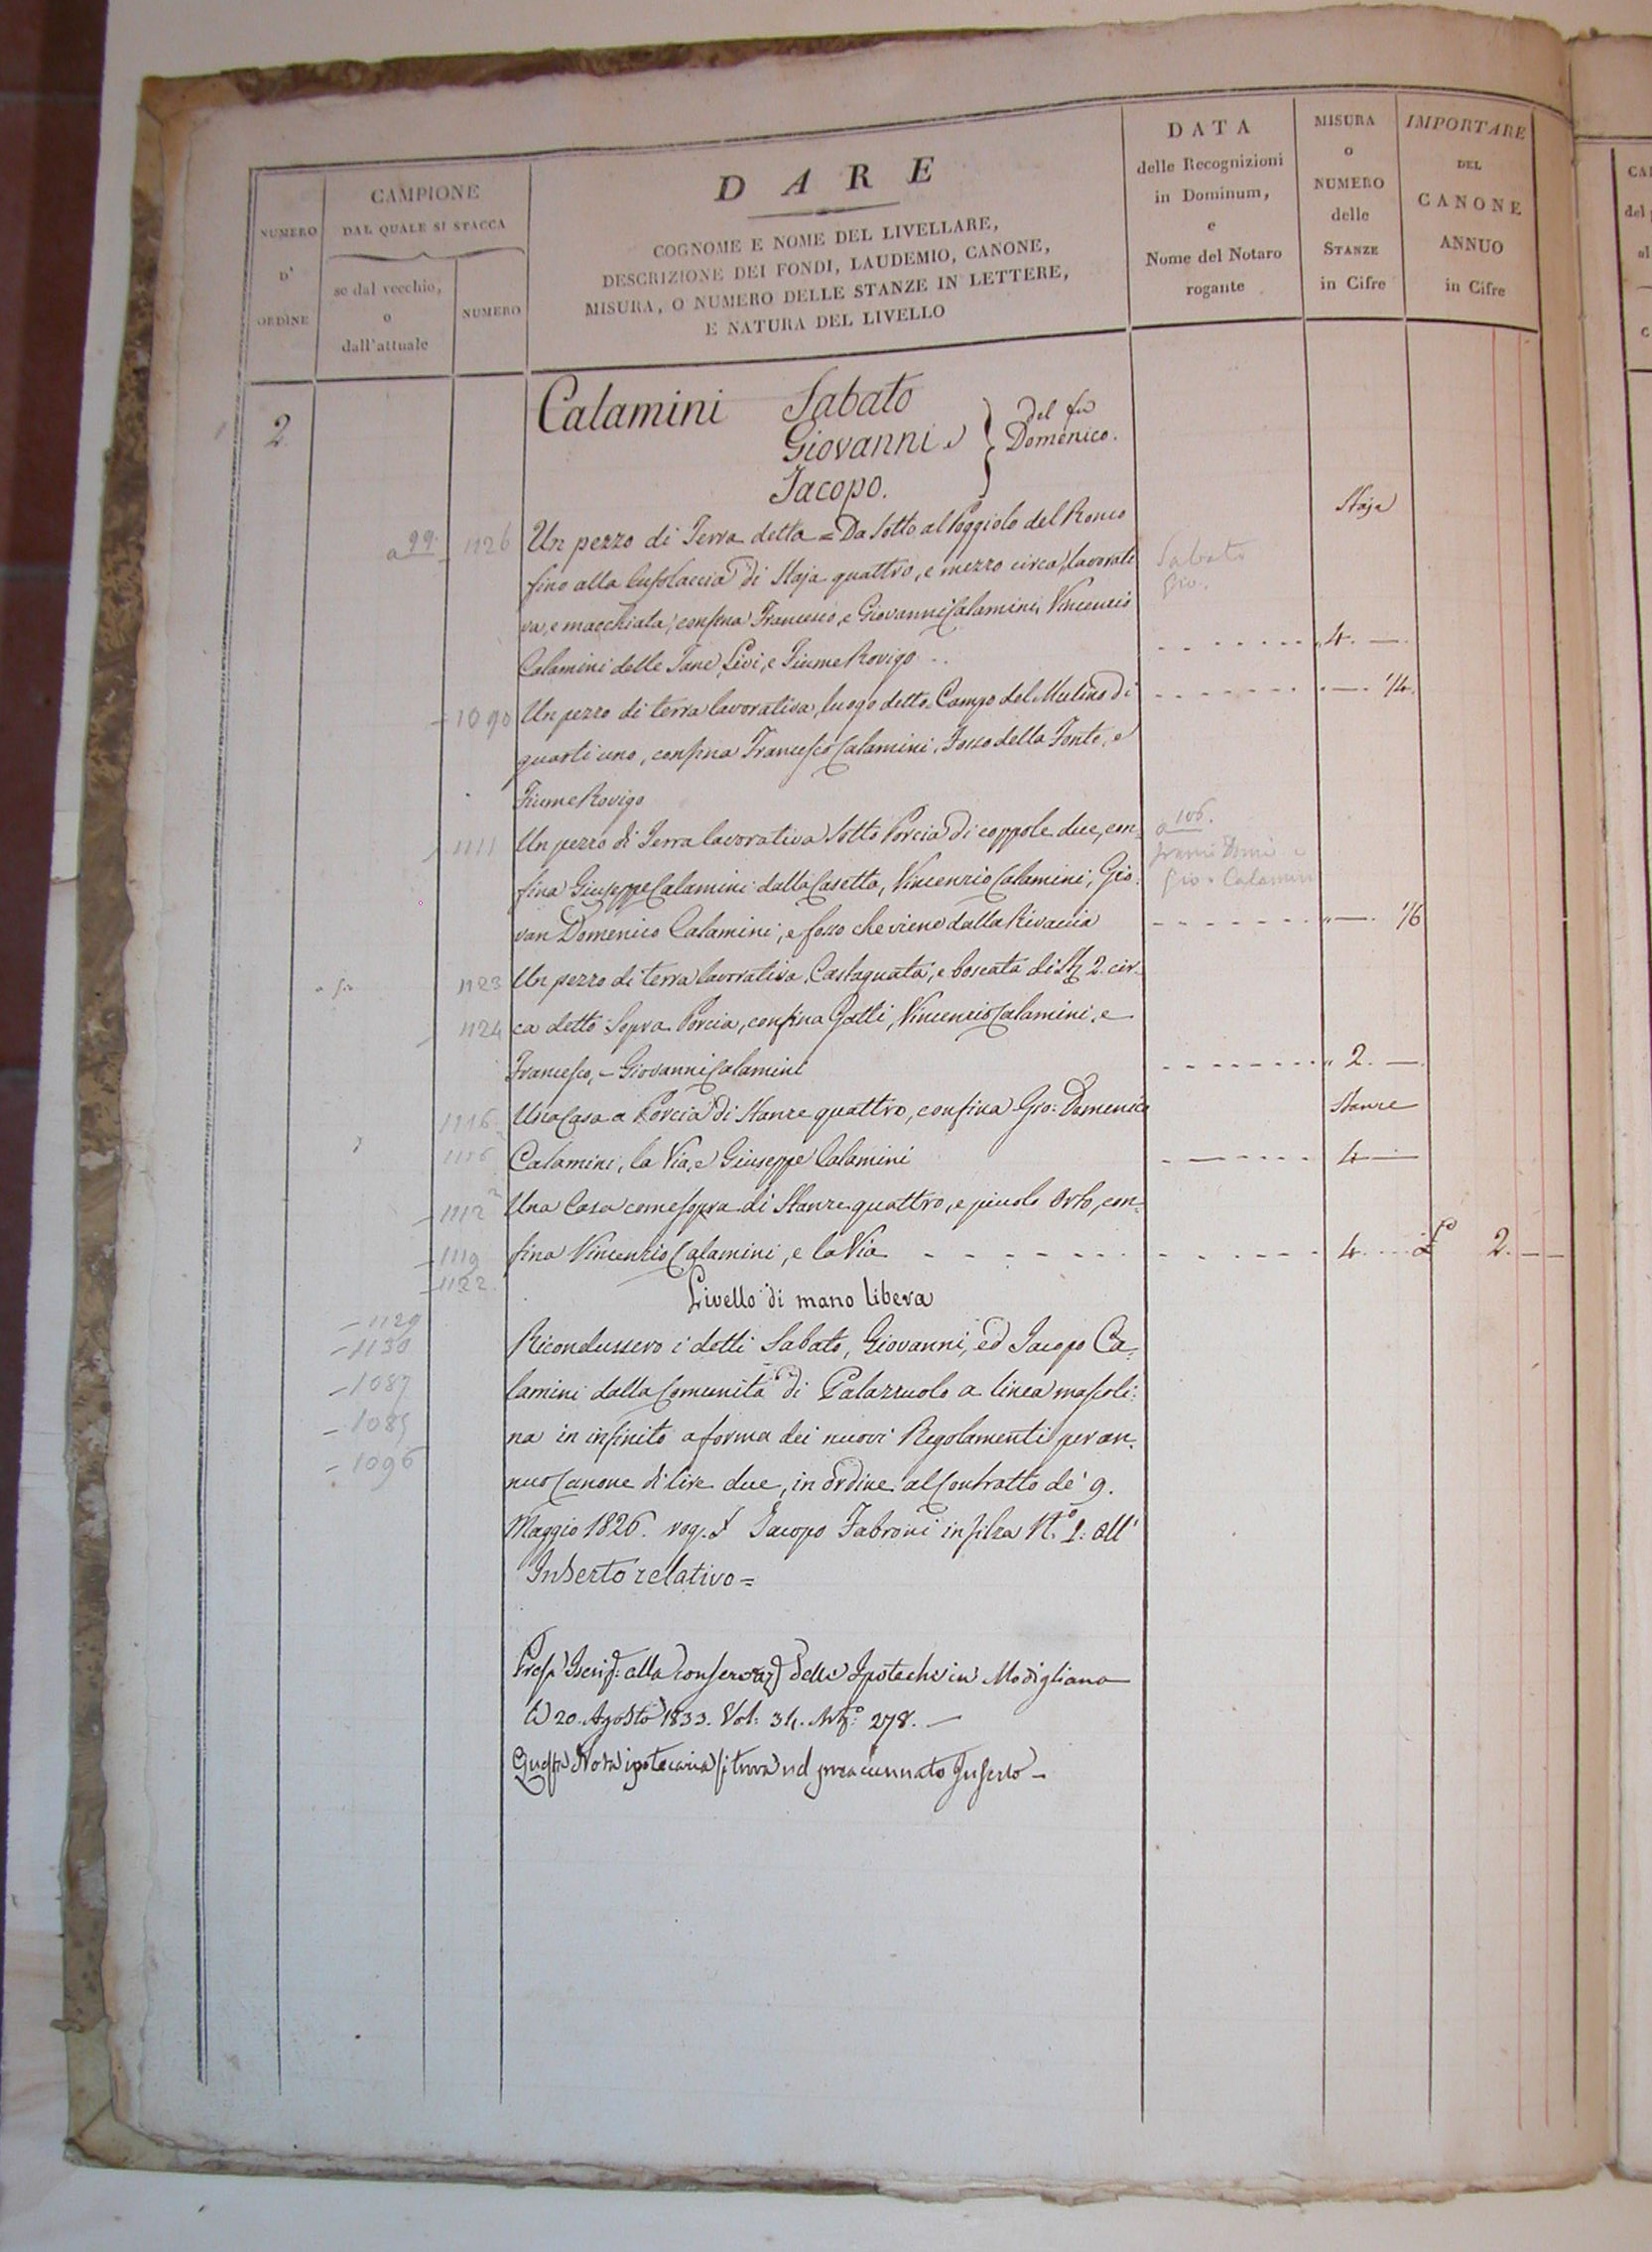 NUMERO
D'
ORDINE
CAMPIONE
DAL QUALE SI STACCA
se dal vecchio,
o
dall'attuale
NUMERO
DARE
COGNOME E NOME DEL LIVELLARE,
DESCRIZIONE DEI FONDI, LAUDEMIO, CANONE,
MISURA, O NUMERO DELLE STANZE IN LETTERE,
E NATURA DEL LIVELLO
DATA
delle Recognizioni
in Dominum,
e
Nome del Notaro
rogante
MISURA
o
NUMERO
delle
STANZE
in Cifre
IMPORTARE
DEL
CANONE
ANNUO
in Cifre
2
Calamini Sabato
Giovanni e
Jacopo.
del fu
Domenico.
Staja
a 99. 1126 Un pezzo di Terra detta = Da Sotto al Poggiolo del Ronco
fino alla di Staja quattro, e mezzo circa, lavorati
va, e macchiata, confina Francesco, e Giovanni Calamini, Vincenzio
Calamini delle Tane, Livi, e Fiume Rovigo - - 4. —
Sabato
Gio.
1090 Un pezzo di terra lavorativa, luogo detto = Campo del Mulino di 1/4.
quarti uno, confina Francesco Calamini, Fosso della Fonte, e
Fiume Rovigo
1111 Un pezzo di Terra lavorativa Sotto Porcia di coppole due, con=
a 106.
fina Giuseppe Calamini dalla Casetta, Vincenzio Calamini, Gio:
Gio. Calamini
van Domenico Calamini, e fosso che viene dalla Rivaccia 1/6
1123 Un pezzo di terra lavorativa, Castagnata, e boscata di St. 2. cir=
1124 ca detto Sopra Porcia, confina Galli, Vincenzio Calamini, e
Francesco, = Giovanni Calamini 2. —
1116 Una Casa a Porcia di Stanze quattro, confina Gio: Domenico Stanze
1116 Calamini, la Via, e Giuseppe Calamini 4 —
1112 Una Casa come sopra di Stanze quattro, e piccolo Orto, con=
1119 fina Vincenzio Calamini, e la Via 4. £ 2. — —
1122.
Livello di mano libera
1129
1130 Ricondussero i detti Sabato, Giovanni, ed Jacopo Ca=
1087 lamini dalla Comunità di Palazzuolo a linea mascoli=
1085 na in infinito a forma dei nuovi Regolamenti per an=
1096 nuo Canone di lire due, in ordine al Contratto de' 9.
Maggio 1826. rog. Jacopo Fabroni in filza N.° 1: all'
Inserto relativo =
Presa Iscriz: alla Conservaz delle Ipoteche in Modigliana
li 20. Agosto 1833. Vol: 34. Art.°: 278. —
Questa Nota ipotecaria si trova nel preaccennato Inserto —